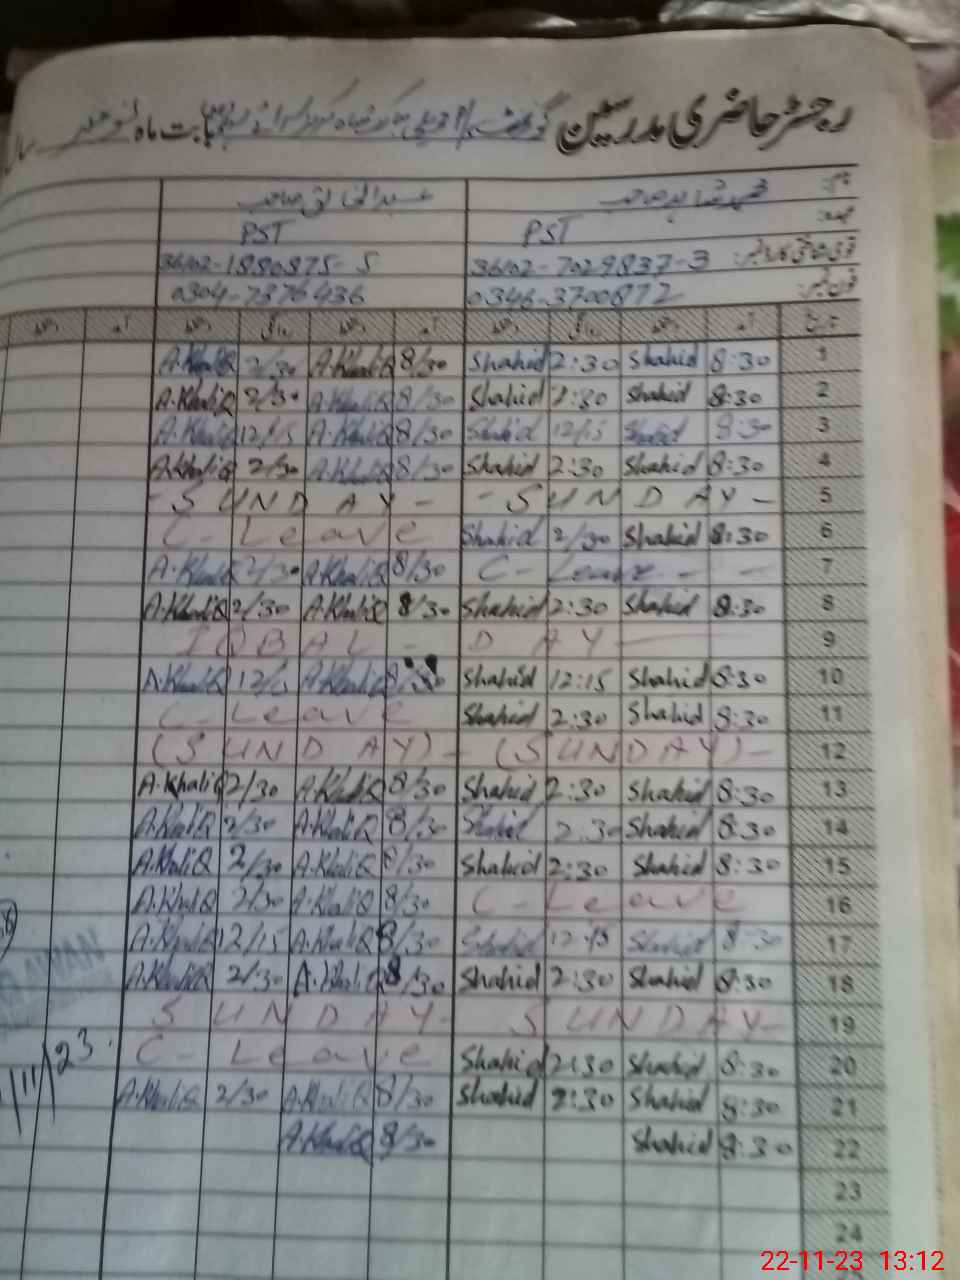 رجسٹر حاضری مدرسین گورنمنٹ بابت ماہ نومبر
نام: محمد شاہد صاحب عبدالخالق صاحب
عہدہ: PST PST
قومی شناختی کارڈ نمبر: 36102-7029837-3 36102-1880875-5
فون نمبر: 0346-3700872 0304-7876436
تاریخ آمد دستخط روانگی دستخط آمد دستخط روانگی دستخط آمد دستخط
A.KhaliQ 2/30 A.KhaliQ 8/30 Shahid 2:30 Shahid 8:30 1
A.KhaliQ 2/30 A.KhaliQ 8/30 Shahid 2:30 Shahid 8:30 2
A.KhaliQ 12/15 A.KhaliQ 8/30 Shahid 12/15 Shahid 8:30 3
A.KhaliQ 2/30 A.KhaliQ 8/30 Shahid 2:30 Shahid 8:30 4
- SUNDAY - - SUNDAY - 5
C - Leave Shahid 2/30 Shahid 8:30 6
A.KhaliQ 2/30 A.KhaliQ 8/30 C - Leave - - 7
A.KhaliQ 2/30 A.KhaliQ 8/30 Shahid 2:30 Shahid 8:30 8
IQBAL - DAY 9
A.KhaliQ A.KhaliQ 8/30 Shahid 12:15 Shahid 8:30 10
C - Leave Shahid 2:30 Shahid 8:30 11
(SUNDAY) - (SUNDAY) - 12
A.KhaliQ 2/30 A.KhaliQ 8/30 Shahid 2:30 Shahid 8:30 13
A.KhaliQ 2/30 A.KhaliQ 8/30 Shahid 2:30 Shahid 8:30 14
A.KhaliQ 2/30 A.KhaliQ 8/30 Shahid 2:30 Shahid 8:30 15
A.KhaliQ 2/30 A.KhaliQ 8/30 C - Leave 16
A.KhaliQ 12/15 A.KhaliQ 8/30 Shahid 12:15 Shahid 8:30 17
A.KhaliQ 2/30 A.KhaliQ 8/30 Shahid 2:30 Shahid 8:30 18
SUNDAY - SUNDAY - 19
C - Leave Shahid 2:30 Shahid 8:30 20
A.KhaliQ 2/30 A.KhaliQ 8/30 Shahid 2:30 Shahid 8:30 21
A.KhaliQ 8/30 Shahid 8:30 22
23
24
AWAN
/11/23
22-11-23 13:12